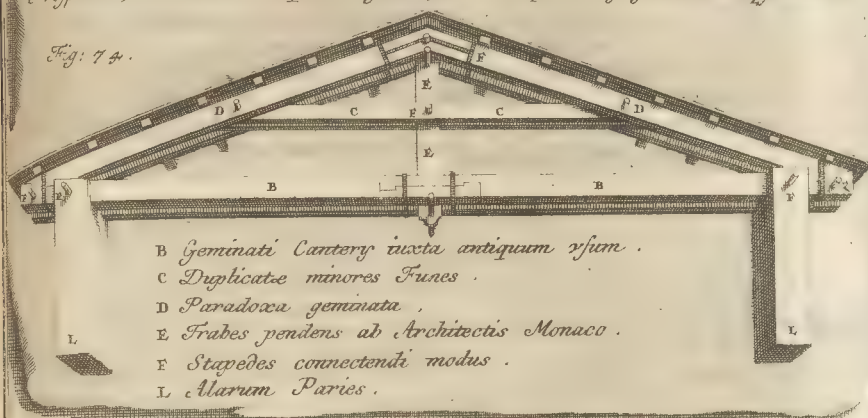 Fig: 74.
F
E
D C F C D
E
F B B F
B Geminati Cantery iuxta antiquum vsum .
C Duplicatæ minores Funes .
D Paradoxa geminata .
E Trabes pendens ab Architectis Monaco .
F Stapedes connectendi modus .
L L
L Alarum Paries .